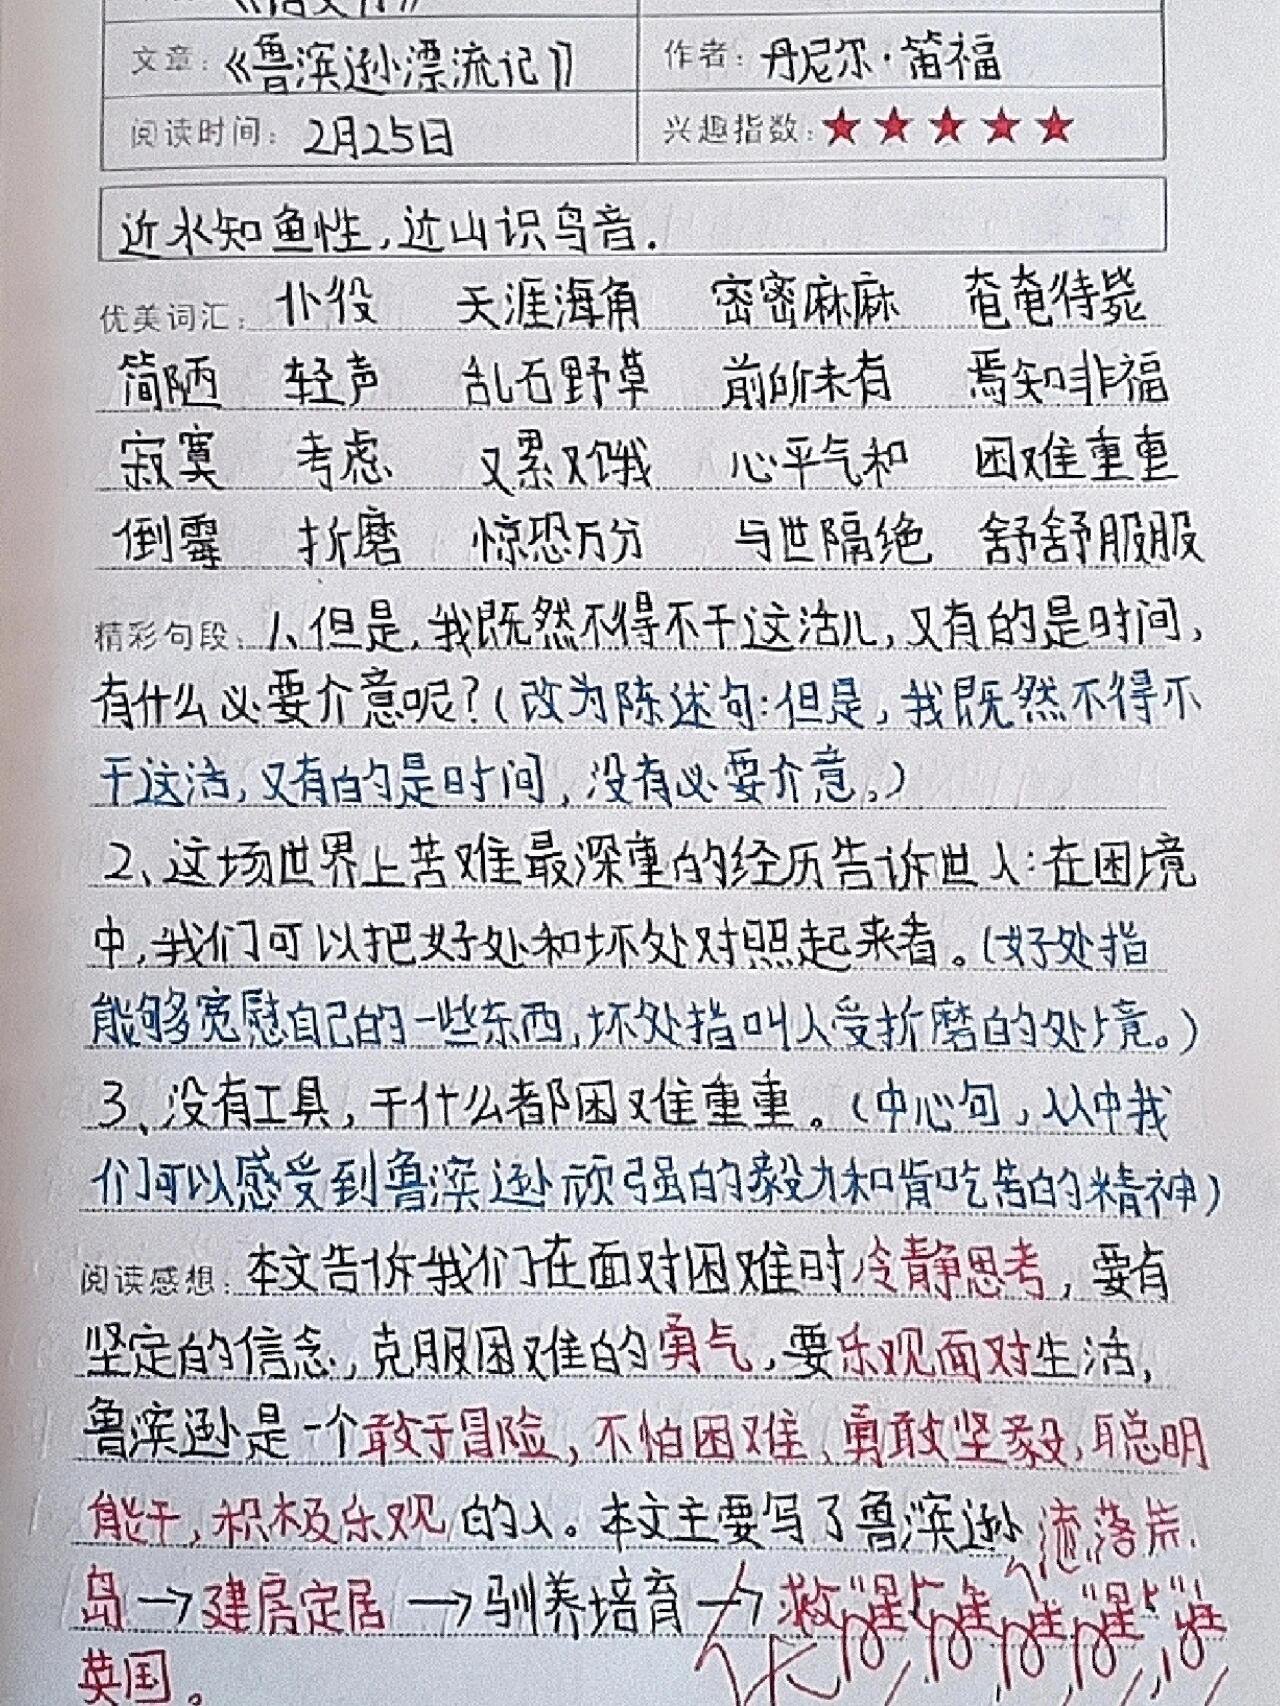 文章：《鲁滨逊漂流记》 作者：丹尼尔·笛福
阅读时间：2月25日 兴趣指数：★★★★★
近水知鱼性，近山识鸟音.
优美词汇： 仆役 天涯海角 密密麻麻 奄奄待毙
简陋 轻声 乱石野草 前所未有 焉知非福
寂寞 考虑 又累又饿 心平气和 困难重重
倒霉 折磨 惊恐万分 与世隔绝 舒舒服服
精彩句段：1、但是，我既然不得不干这活儿，又有的是时间，
有什么必要介意呢？（改为陈述句：但是，我既然不得不
干这活，又有的是时间，没有必要介意。）
2、这场世界上苦难最深重的经历告诉世人：在困境
中，我们可以把好处和坏处对照起来看。（好处指
能够宽慰自己的一些东西，坏处指叫人受折磨的处境。）
3、没有工具，干什么都困难重重。（中心句，从中我
们可以感受到鲁滨逊顽强的毅力和肯吃苦的精神）
阅读感想：本文告诉我们在面对困难时冷静思考，要有
坚定的信念，克服困难的勇气，要乐观面对生活，
鲁滨逊是一个敢于冒险，不怕困难、勇敢坚毅，聪明
能干，积极乐观的人。本文主要写了鲁滨逊流落荒
岛→建房定居→驯养培育→救"星
英国。